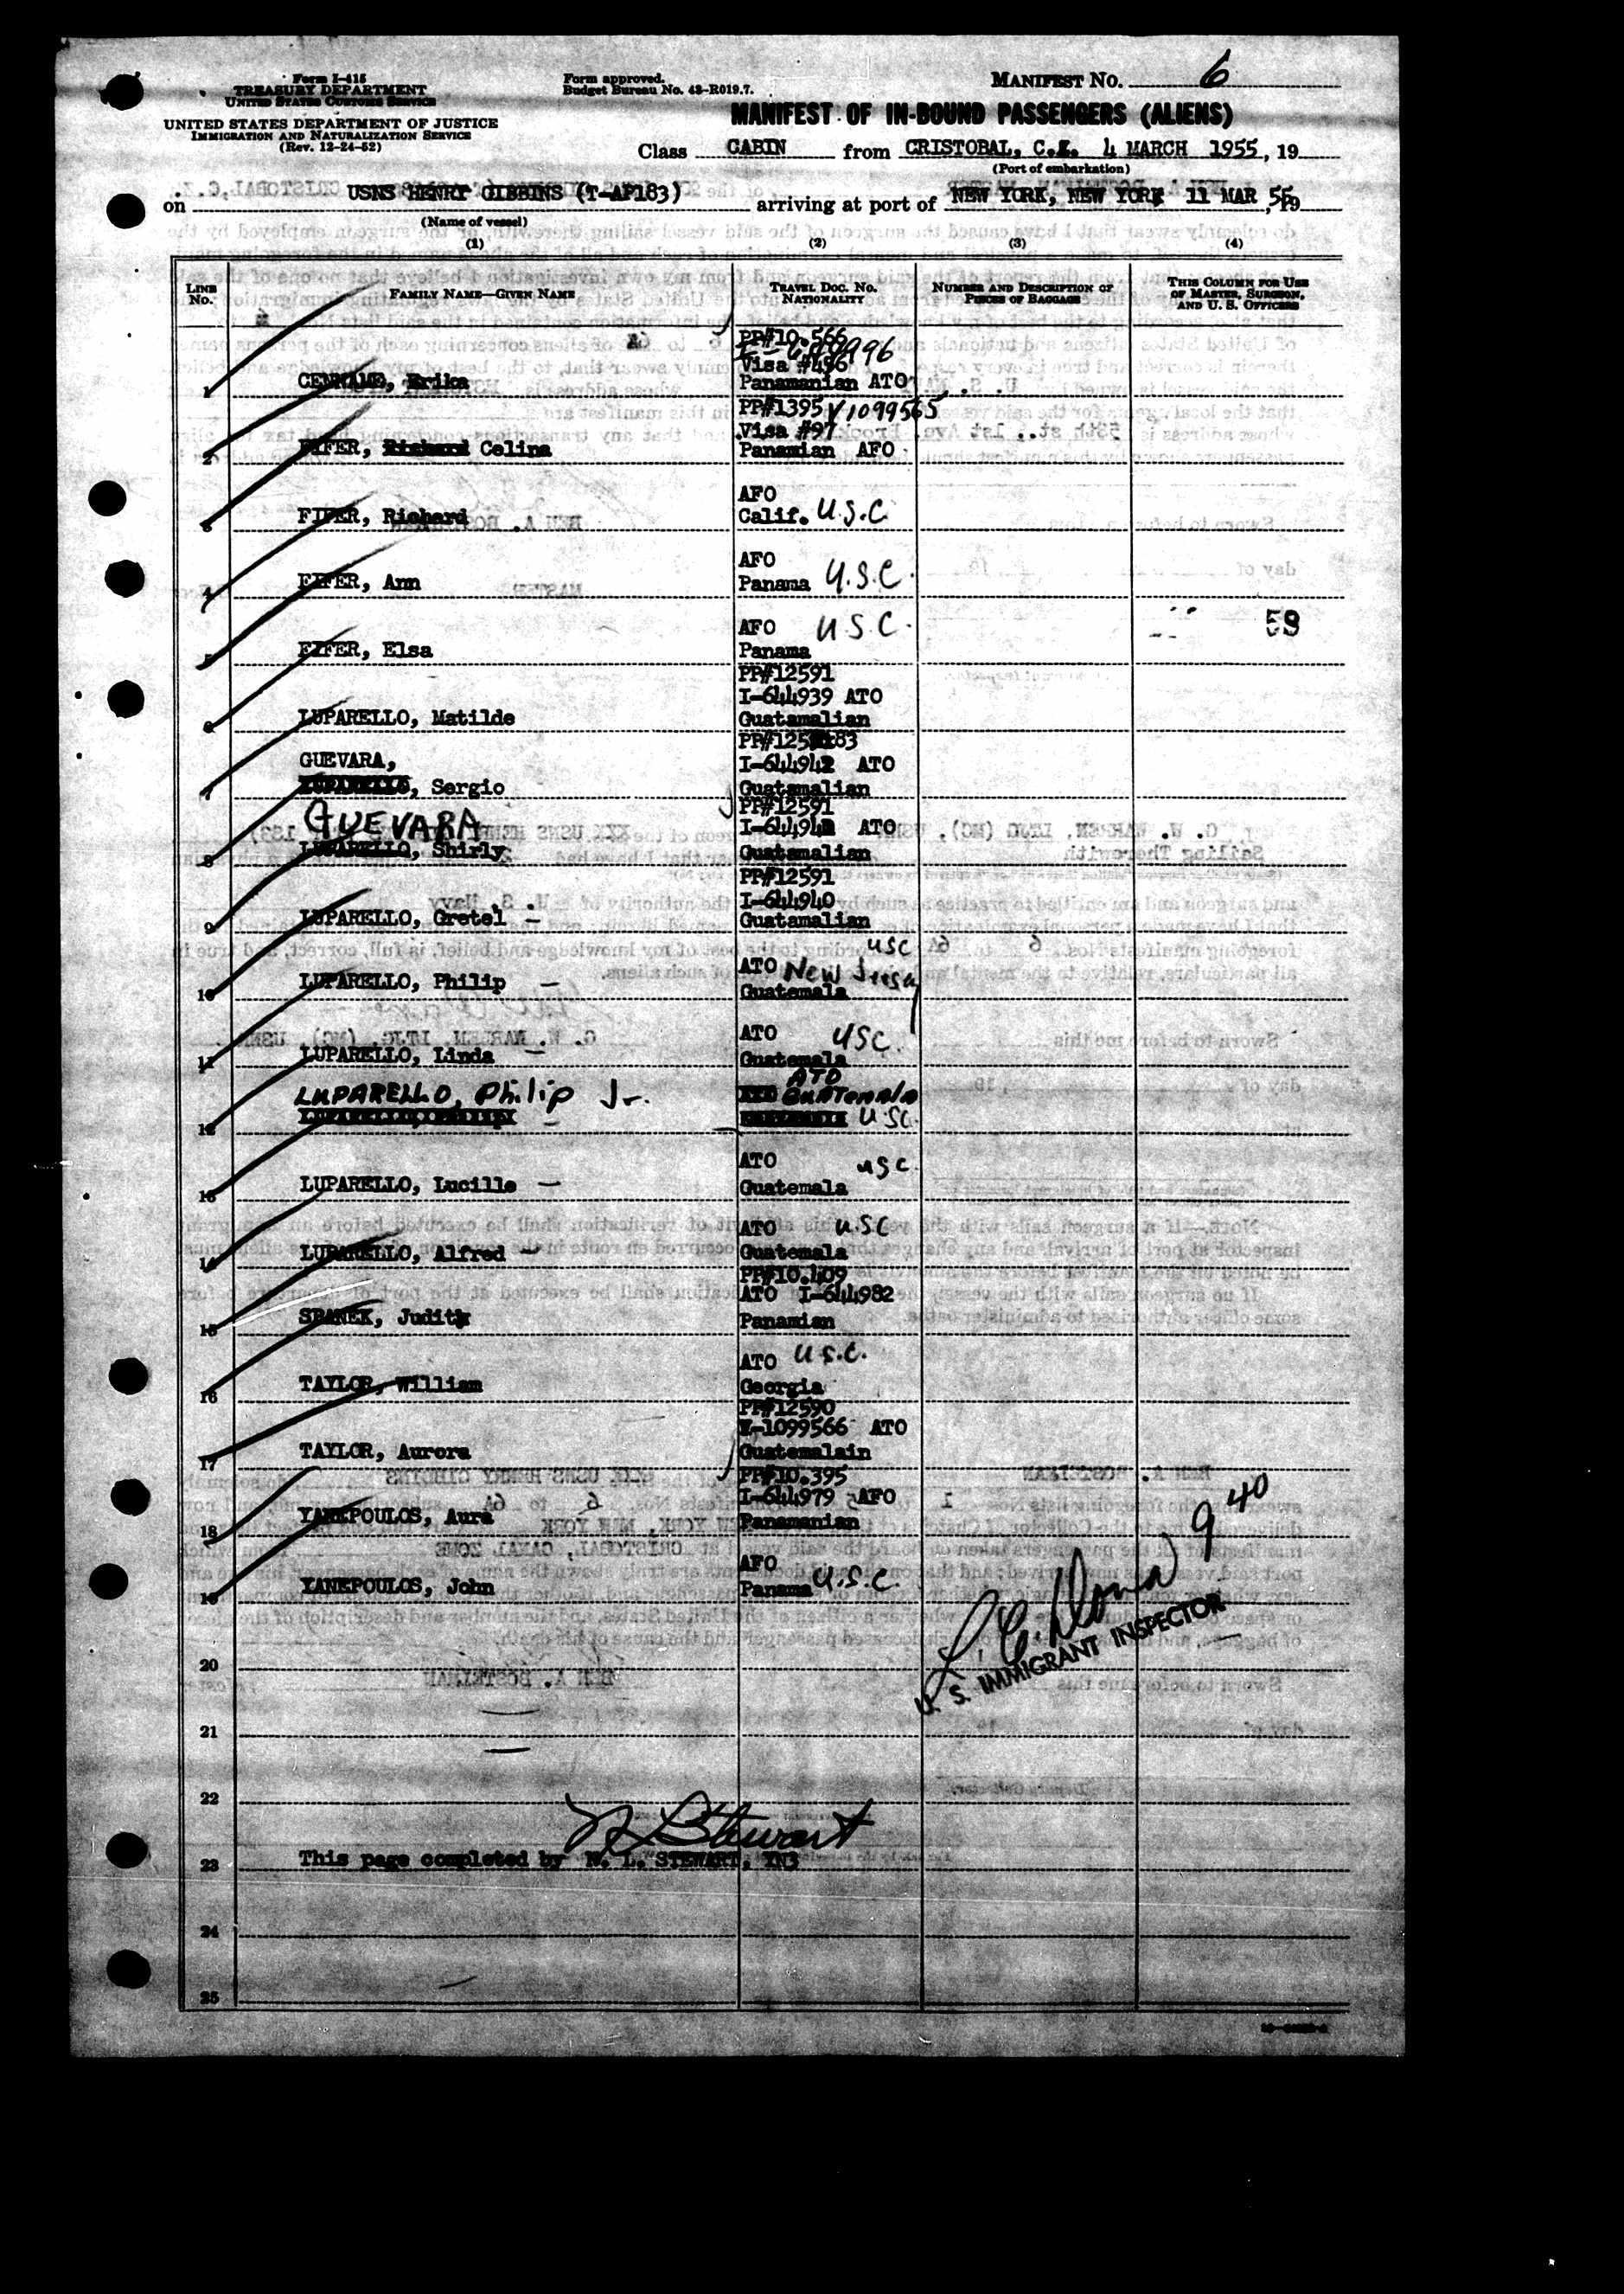 Form I-415
TREASURY DEPARTMENT
UNITED STATES CUSTOMS SERVICE
UNITED STATES DEPARTMENT OF JUSTICE
IMMIGRATION AND NATURALIZATION SERVICE
(Rev. 12-24-52)
Form approved.
Budget Bureau No. 43-R019.7.
MANIFEST NO. 6
MANIFEST OF IN-BOUND PASSENGERS (ALIENS)
Class CABIN from CRISTOBAL, C.Z. 4 MARCH 1955, 19
(Port of embarkation)
on USNS HENRY GIBBINS (T-AP183) arriving at port of NEW YORK, NEW YORK 11 MAR 55, 19
(Name of vessel)
(1) (2) (3) (4)
LINE NO. FAMILY NAME—GIVEN NAME TRAVEL DOC. NO. NATIONALITY NUMBER AND DESCRIPTION OF PIECES OF BAGGAGE THIS COLUMN FOR USE OF MASTER, SURGEON, AND U. S. OFFICERS
PP#10.566
Visa #496
1 Erika Panamanian ATO
PP#1395 V1099565
Visa #97
2 FIFER, Richard Celina Panamian AFO
AFO
3 FIFER, Richard Calif. U.S.C
AFO
4 FIFER, Ann Panama U.S.C.
AFO U S C.
58
5 FIFER, Elsa Panama
PP#12591
I-644939 ATO
6 LUPARELLO, Matilde Guatamalian
GUEVARA,
I-644942 ATO
7 LUPARELLO, Sergio Guatamalian
GUEVARA
PP#12591
ATO
8 LUPARELLO, Shirly Guatamalian
PP#12591
I-644940
9 LUPARELLO, Gretel - Guatamalian
usc
ATO New Jersey
10 LUPARELLO, Philip - Guatemala
ATO USC.
11 LUPARELLO, Linda - Guatemala
LUPARELLO, Philip Jr. ATO Guatemala
12 U.SC.
ATO usc.
13 LUPARELLO, Lucille - Guatemala
ATO U.SC
14 LUPARELLO, Alfred - Guatemala
PP#10.409
ATO I-644982
15 SPANEK, Judith Panamian
ATO U.S.C.
16 TAYLOR, William Georgia
PP#12590
V-1099566 ATO
17 TAYLOR, Aurora Guatemalain
PP#10.395
I-644979 AFO
18 YANEPOULOS, Aura Panamanian
9 40
AFO
19 YANEPOULOS, John Panama U.S.C.
U. S. IMMIGRANT INSPECTOR
20
21
22
N L Stewart
23 This page completed by N. L. STEWART, YN3
24
25